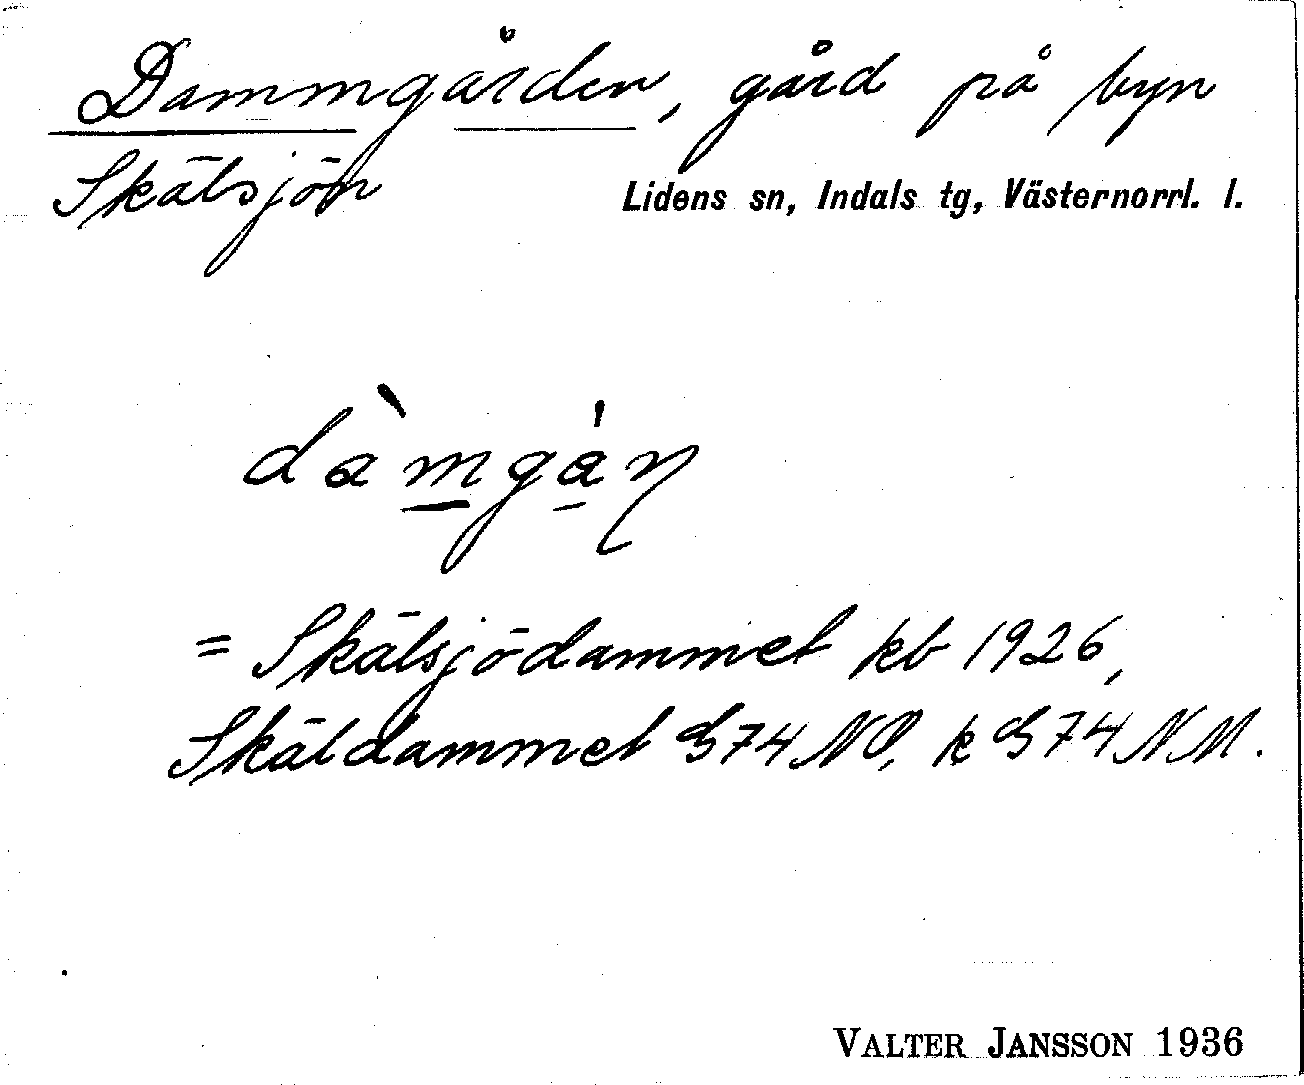 Dammgården, gård på byn
Skälsjön
Lidens sn, Indals tg, Västernorrl. l.
dàmgán
= Skälsjödammet kb 1926,
Skäldammet G 74 NO, k G 74 NM.
VALTER JANSSON 1936